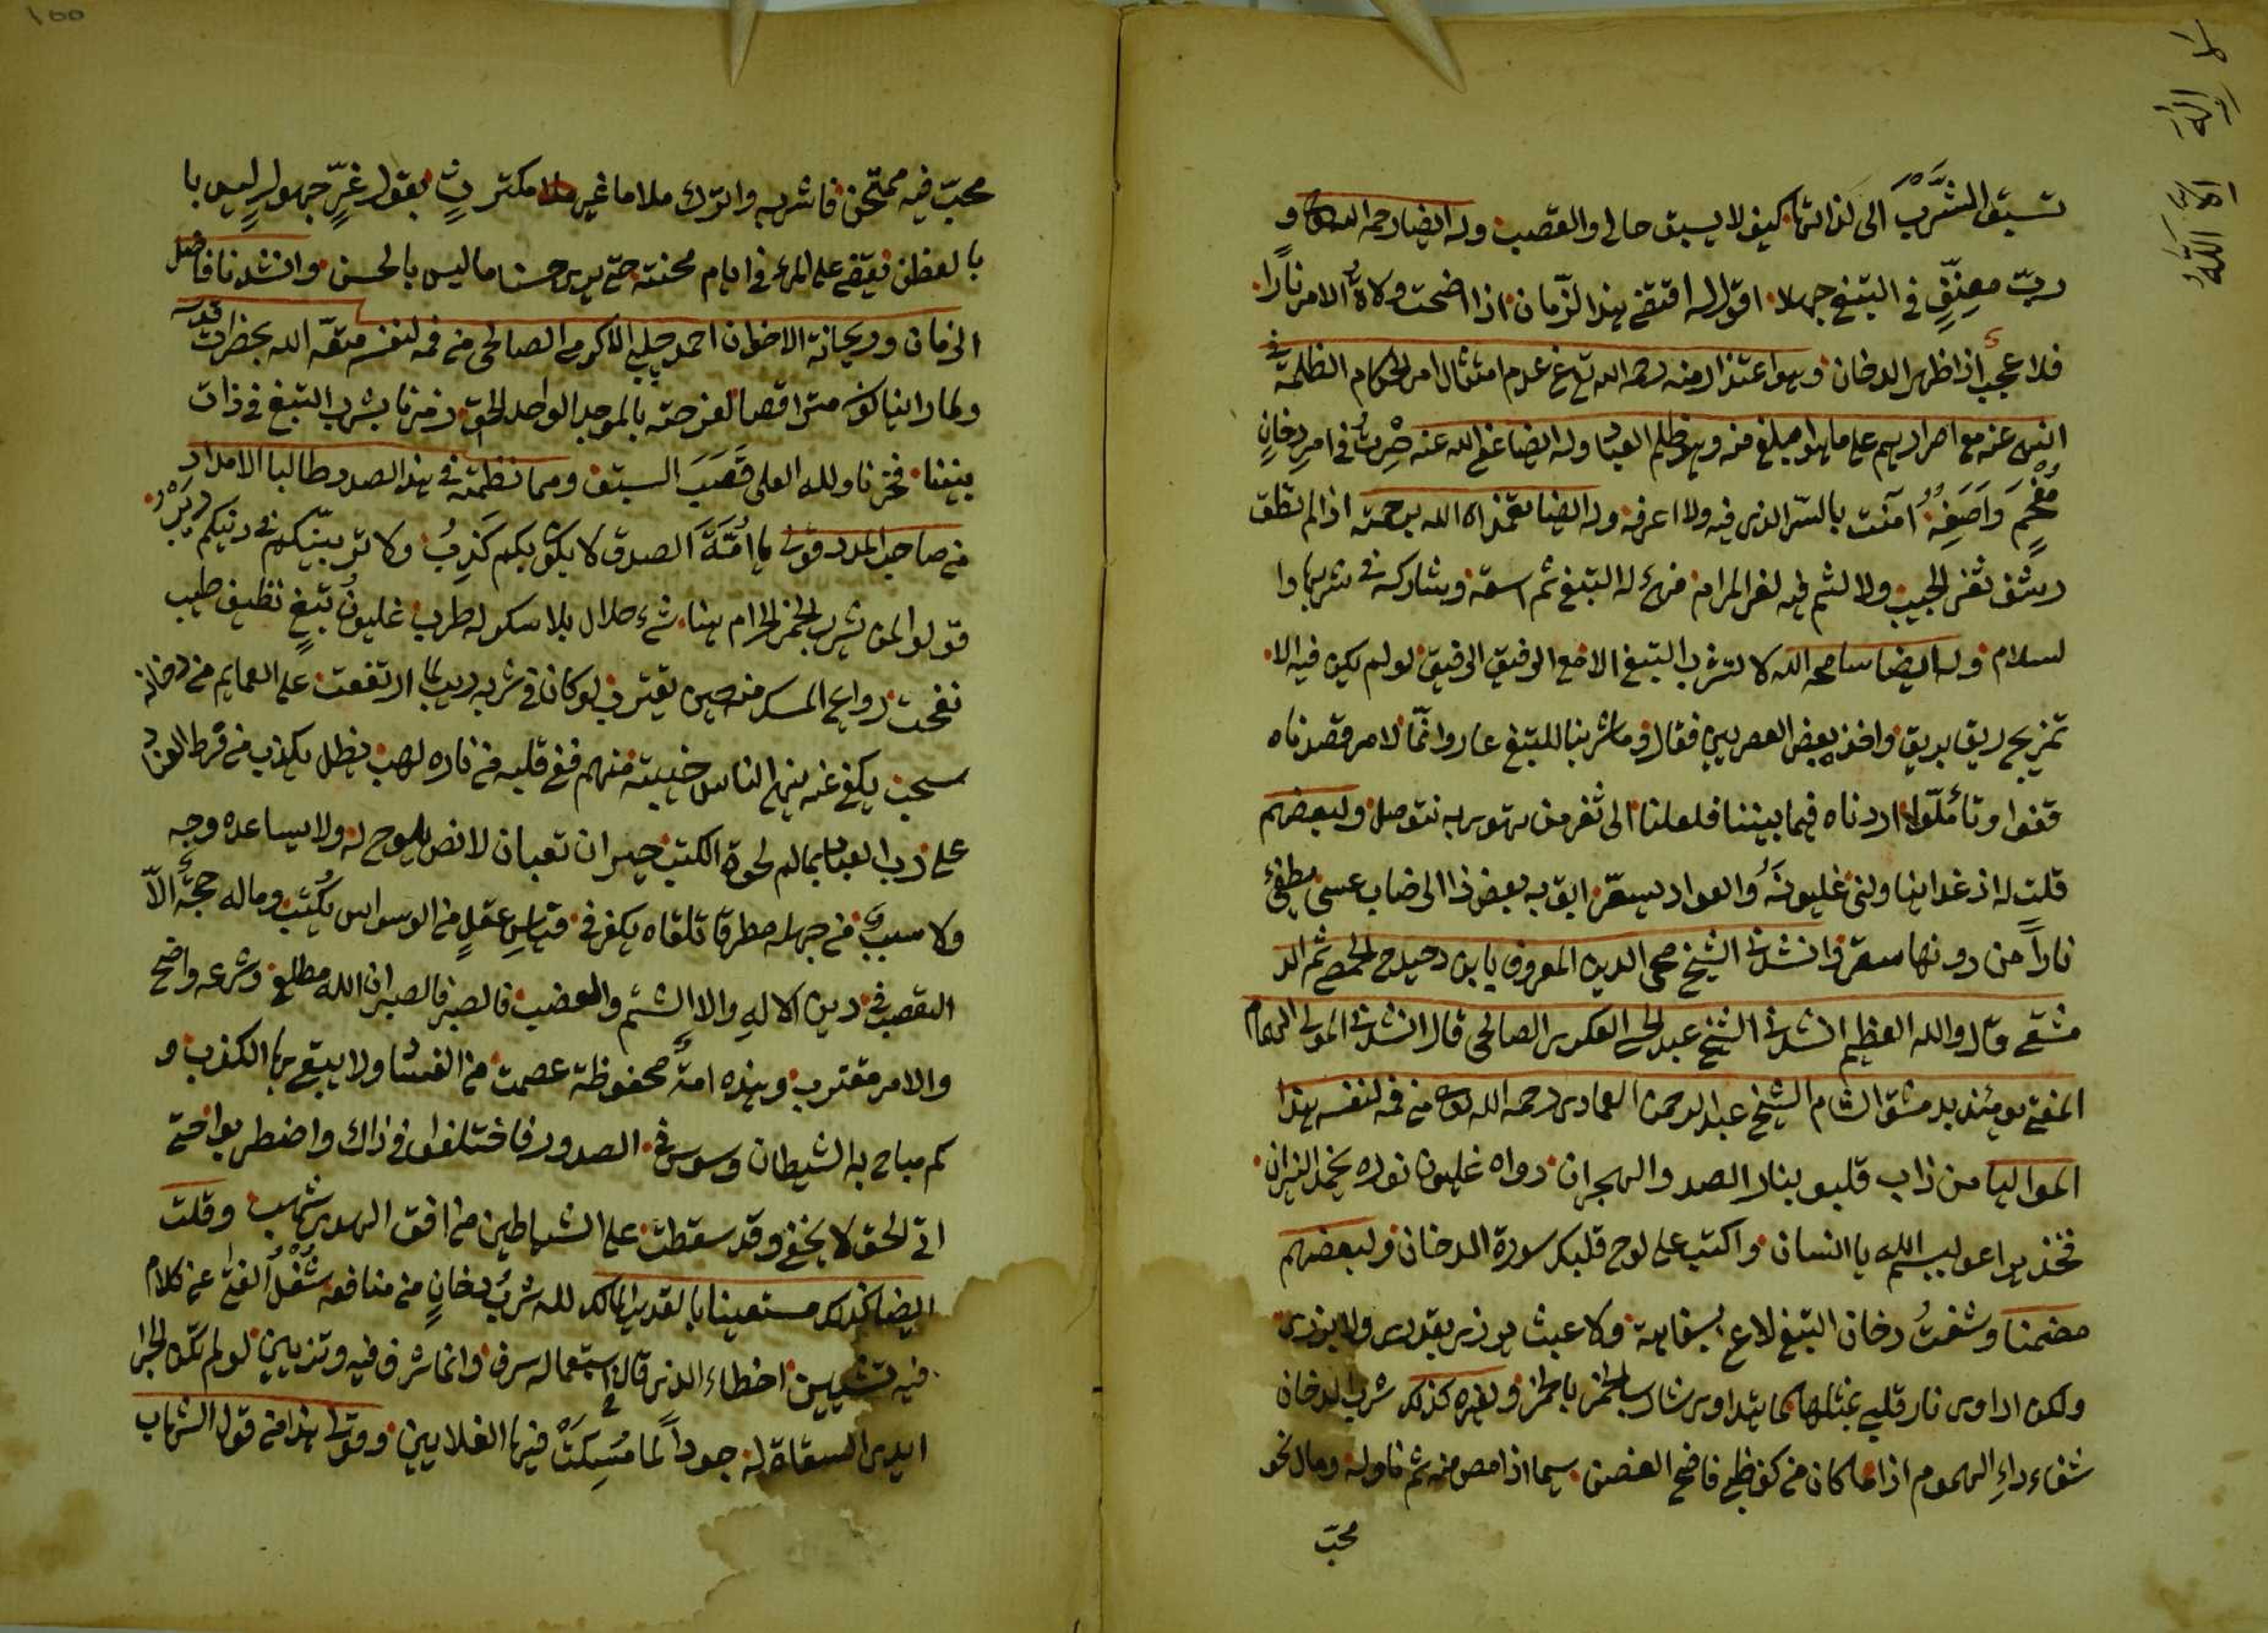 لا إله إلا الله
تسبق الشَّرْبَ الى لذاتها كيف لا يسبق حالى والقصب وله ايضا رحمه الله و
ربّ معنّفٍ فى التبغ جهلا اقول له افتقى هذا الزمان اذا اضحت ولاة الامر نارا
فلا عجب اذا ظهر الدخان وهو اعتذار منه رحمه الله تع عن عدم امتثال امر الحكام الظلمة فى
النهى عنه مع اصرارهم على ما هو ابلغ منه وهو ظلم العباد وله ايضا عفى الله عنه صِرتُ فى امرِ دخانٍ
مُفحَمٍ وَاَصَفِهُ آمنت بالسّر الذى فيه ولا اعرفه وله ايضا تغمده الله برحمته اذا لم تطق
رشف ثغر الحبيب ولا لثم فيه لعز المرام له التبغ ثم اسقه وشاركه فى شربها وا
لسلام وله ايضا سامحه الله لا تشرب التبغ الا مع الرفيق الرفيق لو لم يكن فيه الا
تمزيج ريق بريق واخذ بعض العصريين فقال وما شربنا للتبغ عار وانّما لامر قصدناه
قفوا وتأملّوا اردناه فيما بيننا فلعلنا الى ثغر من نهوى به نتوصل ولبعضهم
قلت له اذ غدا يناولنى غليونَهُ والفواد يستعر ابق به بعض ذا الرضاب عسى يطفئ
ناراً من دونها سقر وانشدنى الشيخ محى الدين المعروف يابن دحيدح الحمصى ثم الد
مشقى قال والله العظيم انشدنى الشيخ عبد الحى العكرى الصالحى قال انشدنى المولى الهمام
المفتى يومئذ بدمشق الشام الشيخ عبد الرحمن العمادى رحمه الله من فمه لنفسه هذا
المواليا من ذاب قلبو بنار الصد والهجران دواه غليون نوره يخمد النيران
فخذ يراعو لبسم الله يا انسان واكتب على لوح قلبك سورة الدخان ولبعضهم
مضمنا وشفتُ دخان التبغ لا عن سفاهة ولا عبث يزرى بقدرى ولا يزرى
ولكن اداوى نار قلبى بمثلها كما يتداوى شارب الخمر بالخمر ولغيره كذلك شرب الدخان
شفاء داءِ الهموم اذا ما كان من كف ظبى فاضح الغصن سيما اذا مص منه ثم ناوله ومال نحو
محبّ
محبّ فيه ممتحن فاشربه واترك ملاما غير مكترثٍ بقول غِرٍّ جهولٍ ليس با
بالفطن يقضى على المرء فى ايام محنته حتى يرى حسنا ما ليس بالحسن وانشدنا فاضل
الزمان وريحانة الاخوان احمد چلبى الاكرمى الصالحى من فمه لنفسه متعّه الله بحضرات قدسه
ولما راينا كون متراقصا لفرحته بالموجد الواحد الحق زمزنا بشرب التبغ فى ذات
بيننا فحزنا ولله العلى قَصَبَ السبق ومما نظمته فى هذا الصدد طالبا الامداد
من صاحب المدد قولى يا اُمَّةَ الصدق لا يشوبكم كَذِبُ ولا تربيّكم فى دنيكم رِيَبْ
قولوا لمن يشرب الخمر الحرام هنا شئ حلال بلا سكر له طرب غليون تبغٍ نظيف طيب
نفحت روائح المسك منه حين يقترب لو كان فى شربه ريب لما ارتفعت على العمايم من دخانه
سحب يكفى عنه ينهى الناس خيبته منهم ففى قلبه من ناره لهب يظل يكذب من فرط العناد
على رب العباد بما لم تحوه الكتب حيران تعبان لا نص يلوح له ولا يساعده وجه
ولا سبب من جهله مطرقا تلقاه يكفر فى قياسِ عقلٍ من الوسواس يُكتب وماله حجة الاّ
التعصب فى دين الاله والا الشتم والغضب فالصبر فالصبر ان الله مطلع وشرعه واضح
والامر مقترب وهذه امة محفوظة عصمت من الفساد ولا يبقى بها الكذب و
كم مباح به الشيطان وسوس فى الصدور فاختلفوا فى ذاك واضطربوا حتى
اتى الحق لا يخفى وقد سقطت على الشياطين من افق الهدى شهب وقلت
ايضا كذلك مستعينا بالقدير المالك لله شربُ دخانٍ من منافعه شُغْلُ الفتى عن كلام
فيه تشيين اخطاء الذى قال استعماله سرف وانما شرف فيه وتزيين لو لم تكن لجرا
ايدى السقاة له جوداً لما مُسِكَتْ فيها الغلايين وقولى هذا من قول الشهاب